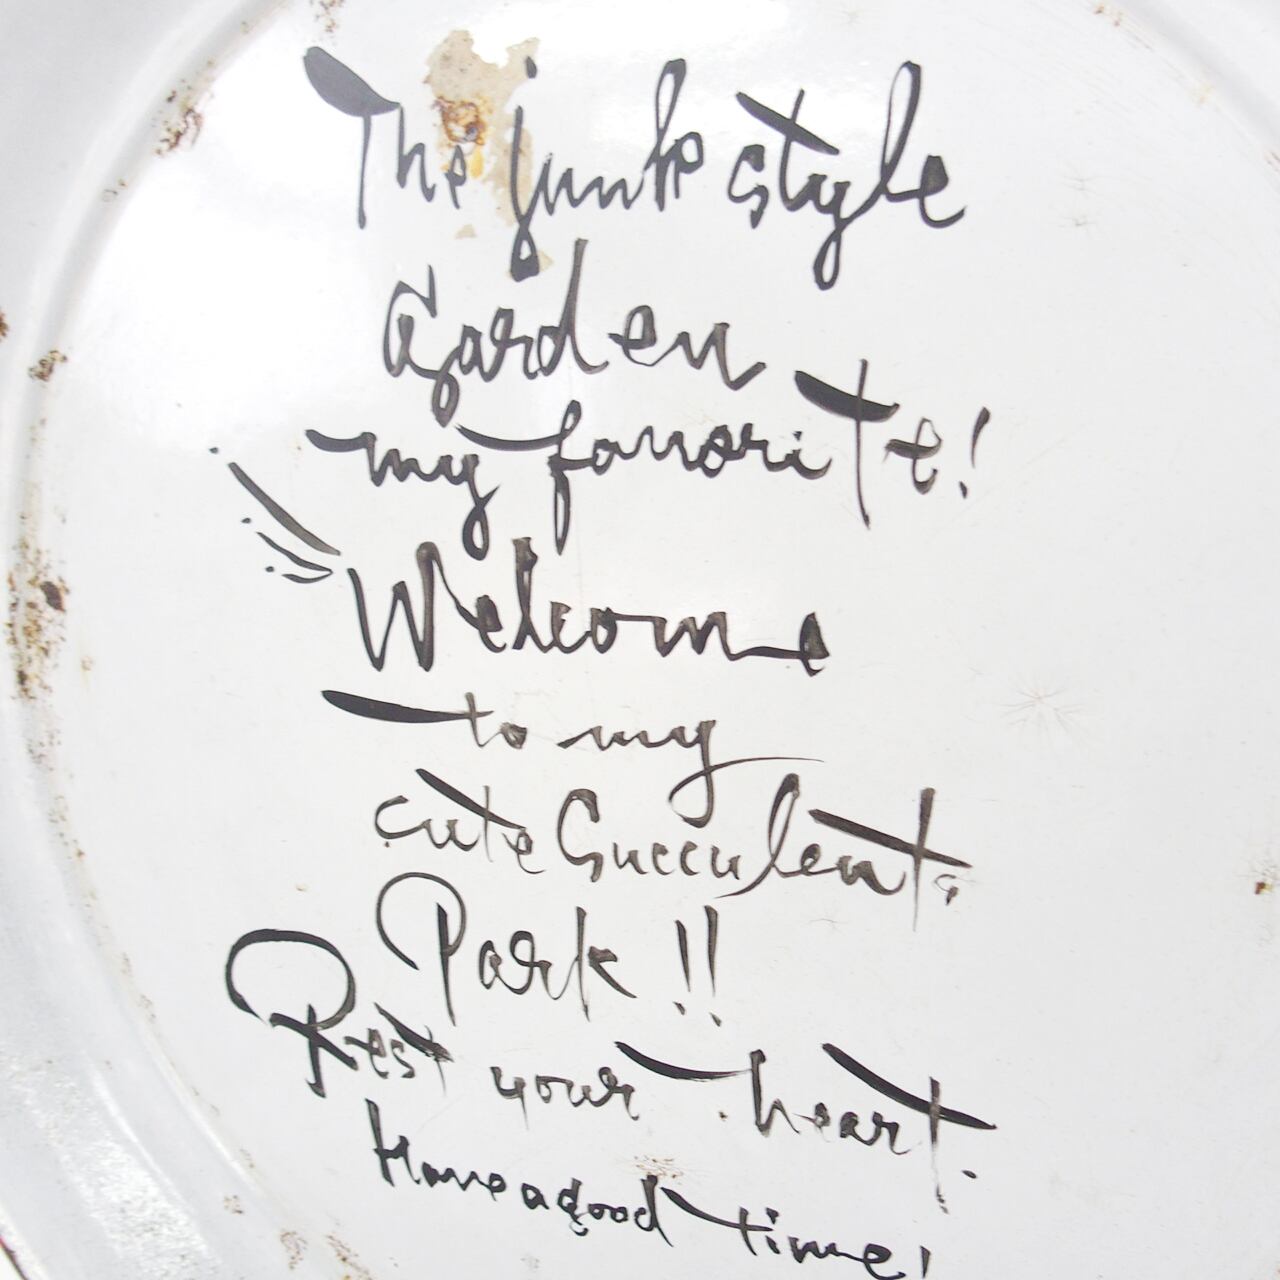 The junk style
Garden
my favorite!
Welcome
to my
cute Succulents
Park !!
Rest your heart.
Have a good time!